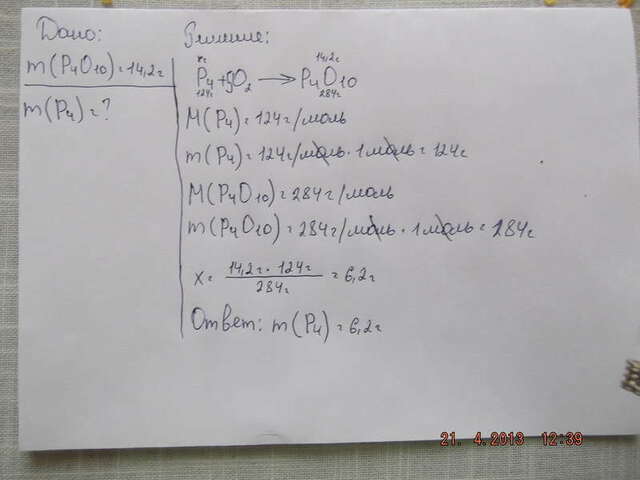 Дано:
m(P4O10)=14,2г
m(P4)=?
Решение:
xг 14,2г
P4+5O2 → P4O10
124г 284г
M(P4)=124г/моль
m(P4)=124г/моль·1моль=124г
M(P4O10)=284г/моль
m(P4O10)=284г/моль·1моль=284г
x= 14,2г·124г = 6,2г
284г
Ответ: m(P4)=6,2г
21. 4.2013 12:39